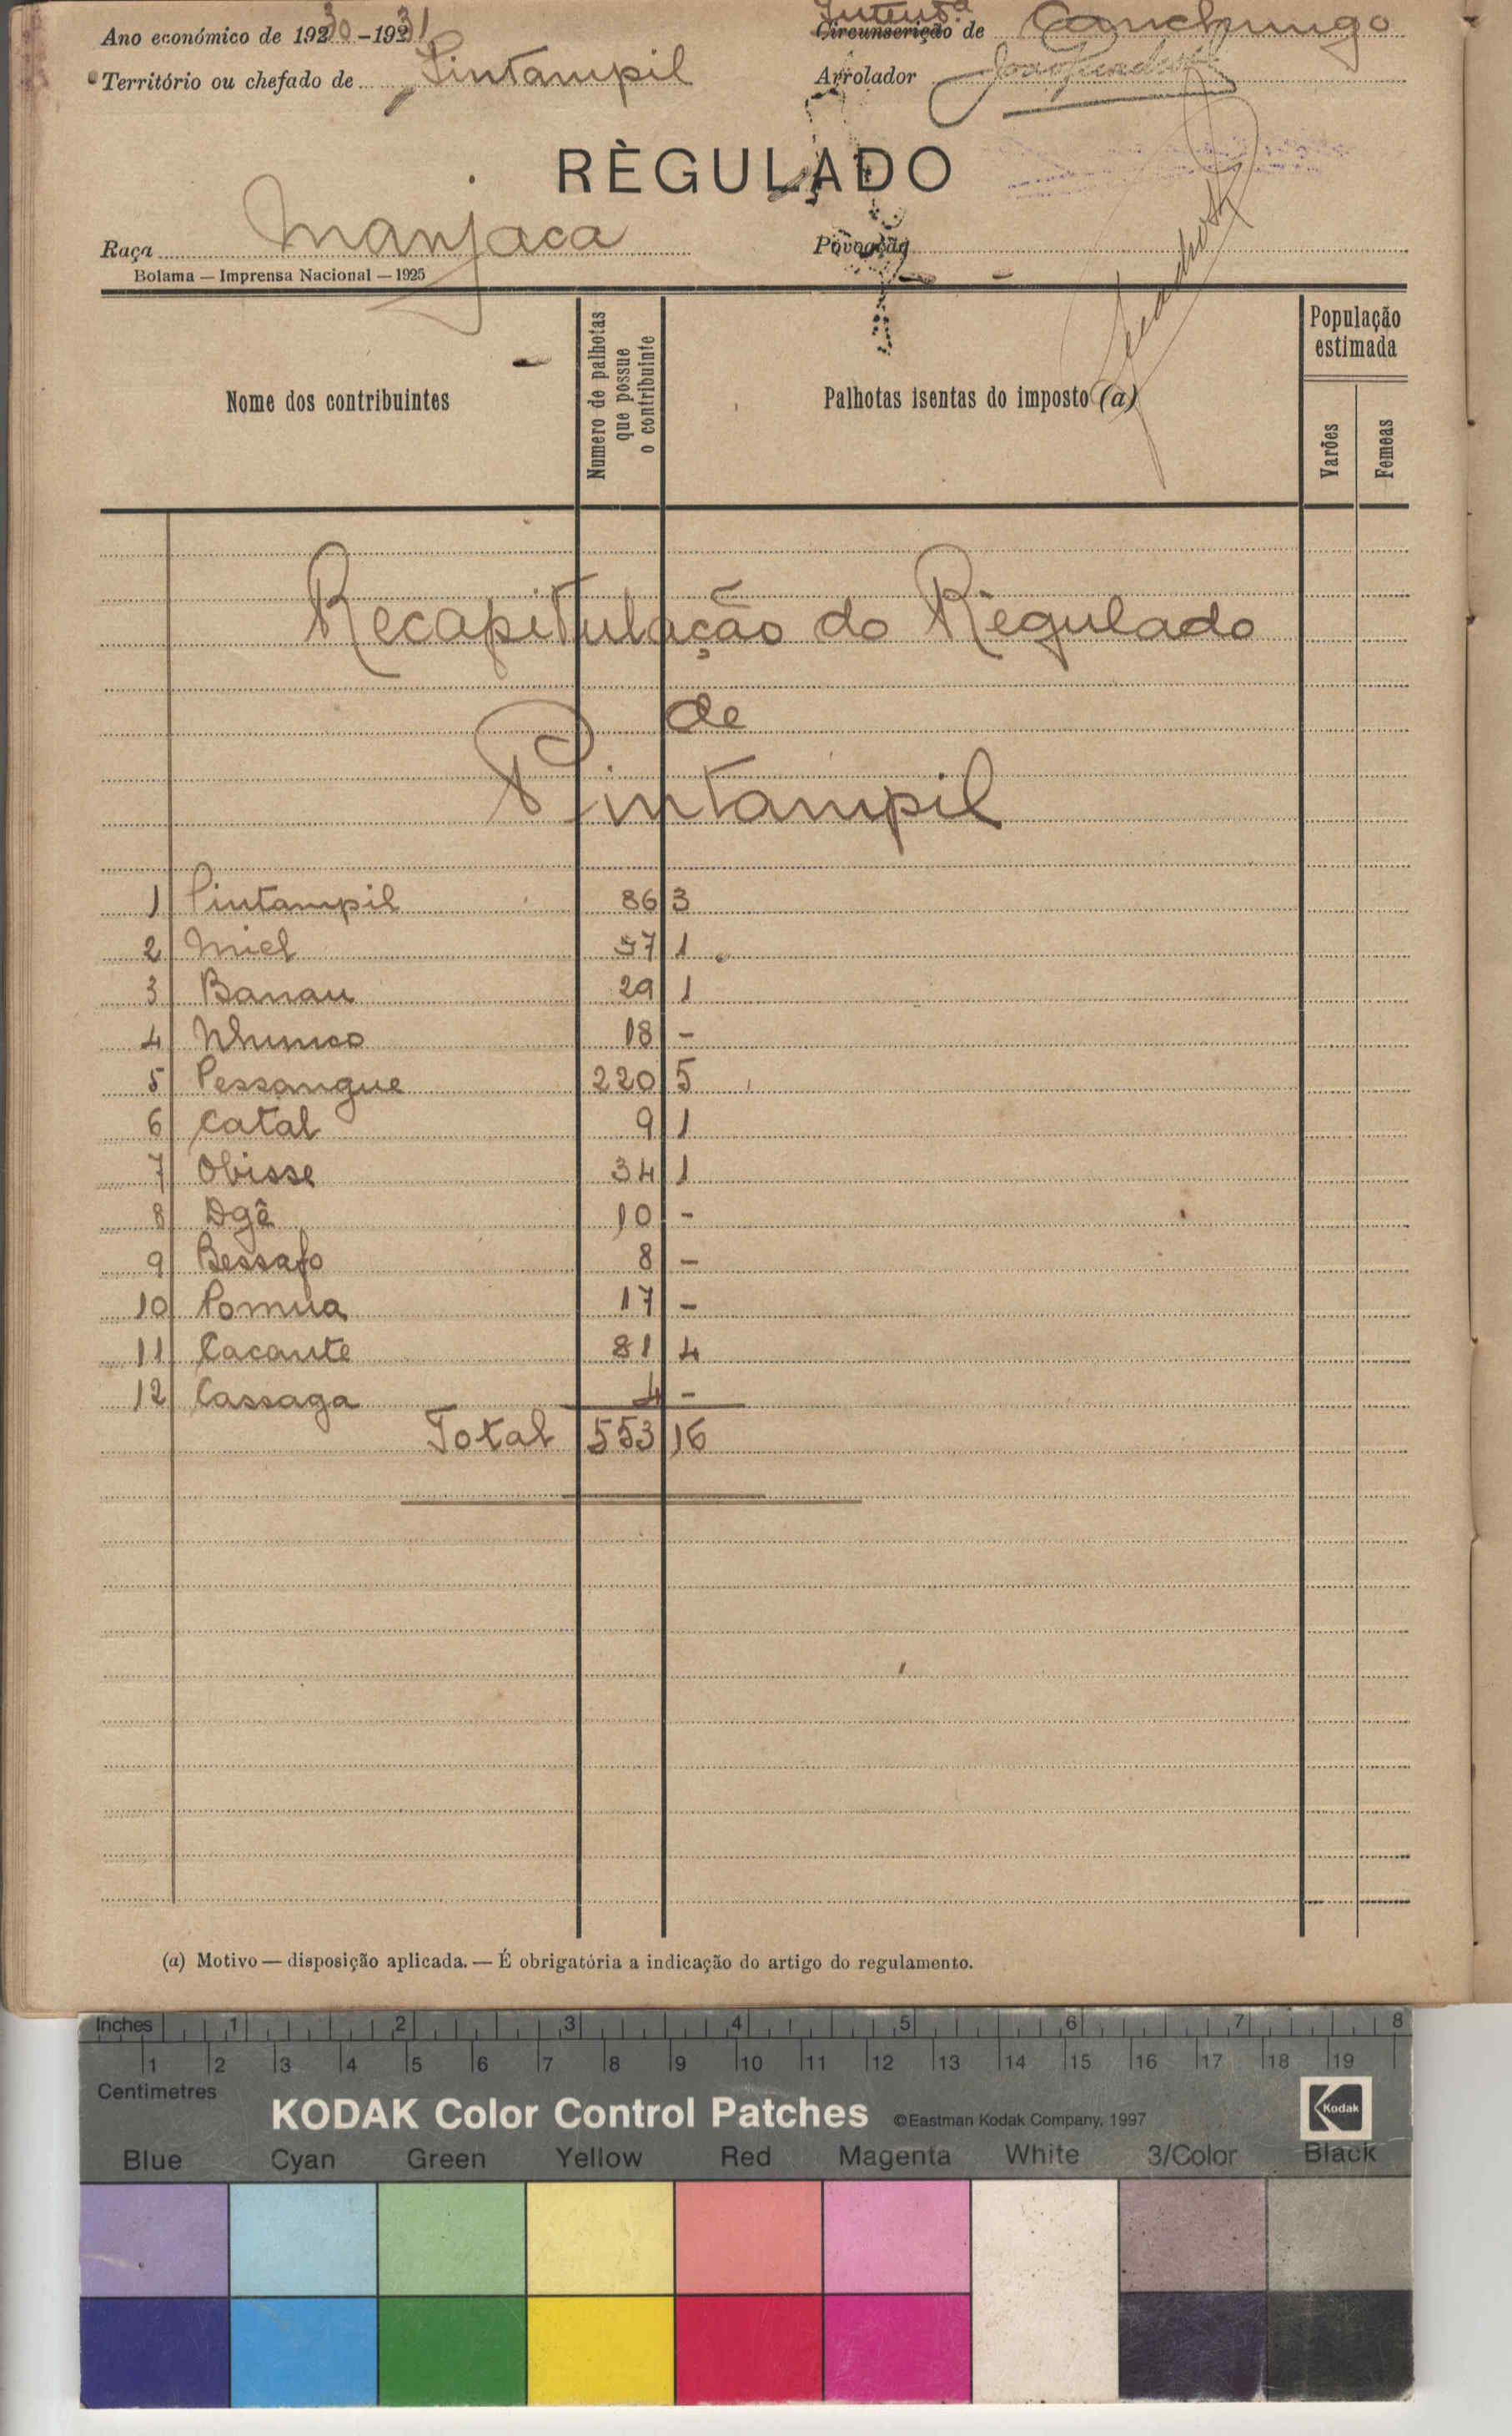 Ano económico de 1930-1931
Intend.ª de Canchungo
Território ou chefado de Pintampil
Arrolador
RÈGULADO
Raça Manjaca
Povoação
Bolama — Imprensa Nacional — 1925
Nome dos contribuintes
Numero de palhotas
que possue
o contribuinte
Palhotas isentas do imposto (a)
População
estimada
Varões
Femeas
Recapitulação do Règulado
de
Pintampil
1 Pintampil 86 3
2 Miel 37 1
3 Banau 29 1
4 18 -
5 Pessangue 220 5
6 Catal 9 1
7 Obisse 34 1
8 Dgê 10 -
9 Bessafo 8 -
10 Pomua 17 -
11 Cacante 81 4
12 Cassaga 4 -
Total 553 16
(a) Motivo — disposição aplicada. — É obrigatória a indicação do artigo do regulamento.
Inches 1 2 3 4 5 6 7 8
1 2 3 4 5 6 7 8 9 10 11 12 13 14 15 16 17 18 19
Centimetres
KODAK Color Control Patches ©Eastman Kodak Company, 1997 Kodak
Blue Cyan Green Yellow Red Magenta White 3/Color Black